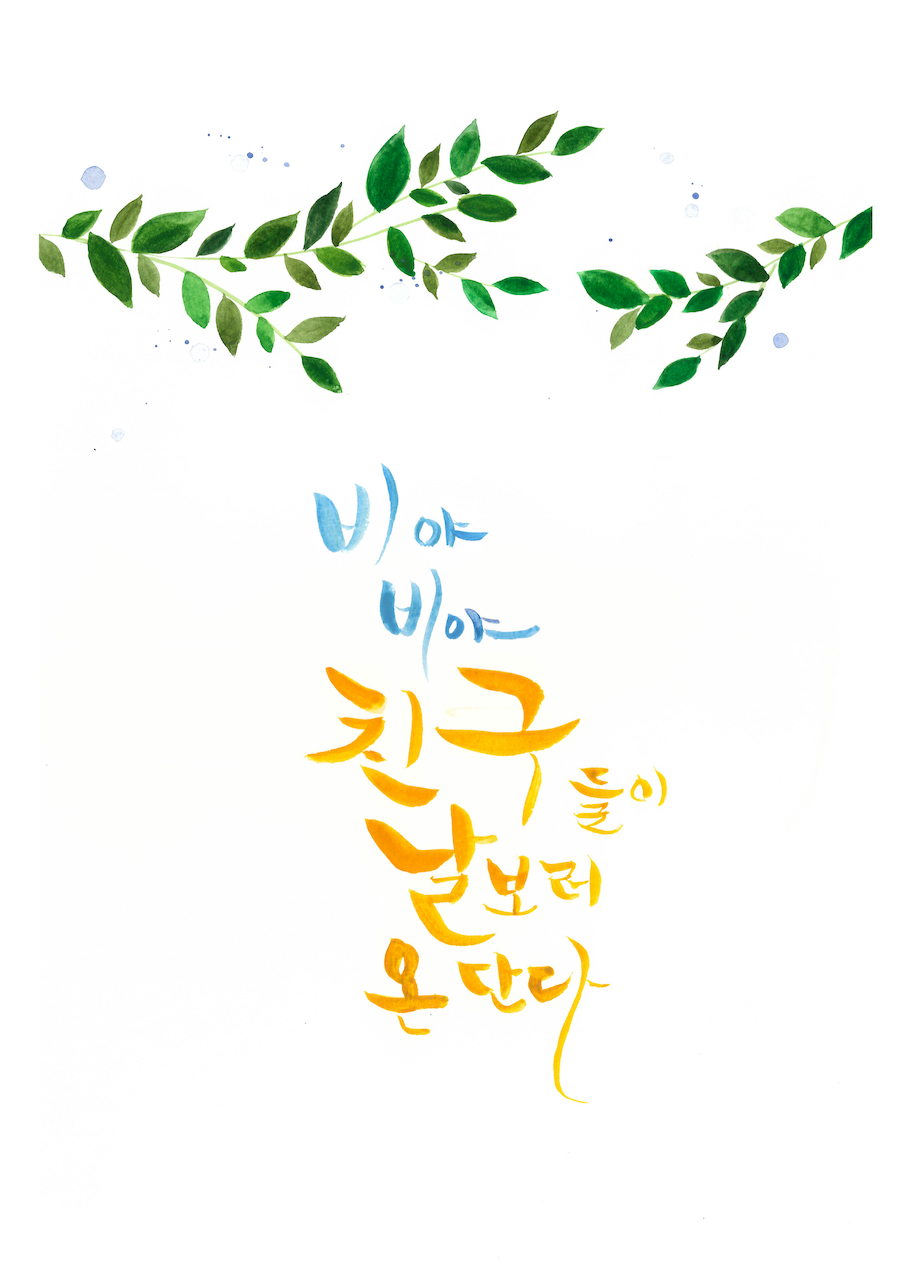 비야
비야
친구들이
날 보러
온단다